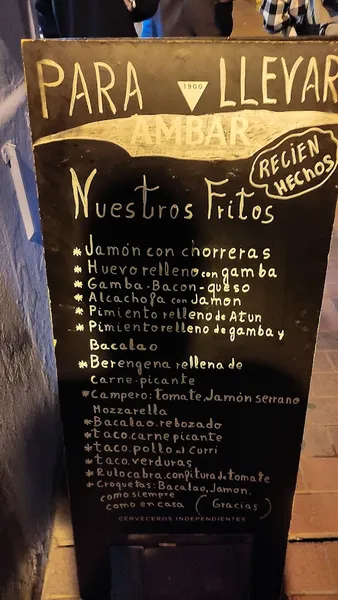 PARA LLEVAR
1900
AMBAR
RECIEN
HECHOS
Nuestros Fritos
* Jamón con chorreras
* Huevo relleno con gamba
* Gamba-Bacon-queso
* Alcachofa con Jamón
* Pimiento relleno de Atun
* Pimiento relleno de gamba y
Bacalao
* Berengena rellena de
carne-picante
* Campero: tomate, Jamón serrano
Mozzarella
* Bacalao rebozado
* taco carne picante
* taco pollo al curri
* taco verduras
* Rulo cabra confitura de tomate
* Croquetas: Bacalao, Jamon.
como siempre
como en casa (Gracias)
CERVECEROS INDEPENDIENTES